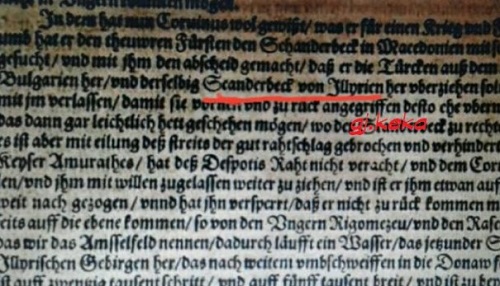 kommen mögen.
In dem hat nun Corvinus wol gewißt/ was er für einen Krieg vnd
vmb hat er den theuwren Fürsten den Schanderbeck in Macedonien mit
gesucht/ vnd mit jhm den abscheid gemacht/ daß er die Türcken auß dem
Bulgarien her/ vnd derselbig Scanderbeck von Illyrien her vberziehen sol
mit jm verlassen/ damit sie vornen vnd zu rück angegriffen desto ehe vber
das dann gar leichtlich hett geschehen mögen/ wo beck zu rech
es ist aber mit eilung deß streits der gut rahtschlag gebrochen vnd verhindert
Keyser Amurathes/ hat deß Despotis Raht nicht veracht/ vnd dem Cor
en/ vnd jhm mit willen zugelassen weiter zu ziehen/ vnd ist er jhm etwan auff
weit nach gezogen/ vnnd hat jhn versperrt/ daß er nicht zu rück kommen m
seits auff die ebene kommen/ so von den Vngern Rigomezeu/ vnd den Ra
das wir das Amsselfeld nennen/ dadurch läufft ein Wasser/ das jetzunder S
Illyrischen Gebirgen her/ das nach weitem vmbschweiffen in die Donaw f
ist auff zwentzig tausent schritt/ vnd auff fünff tausent breit/ vnd ist zu